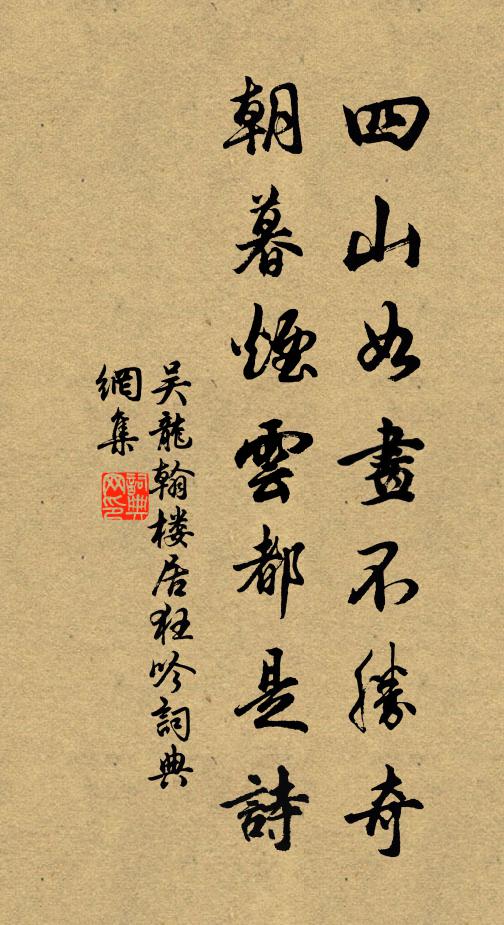 四山如畫不勝奇
朝暮煙雲都是詩
吴龍翰楼居狂吟詞典
網集
詞典
网印